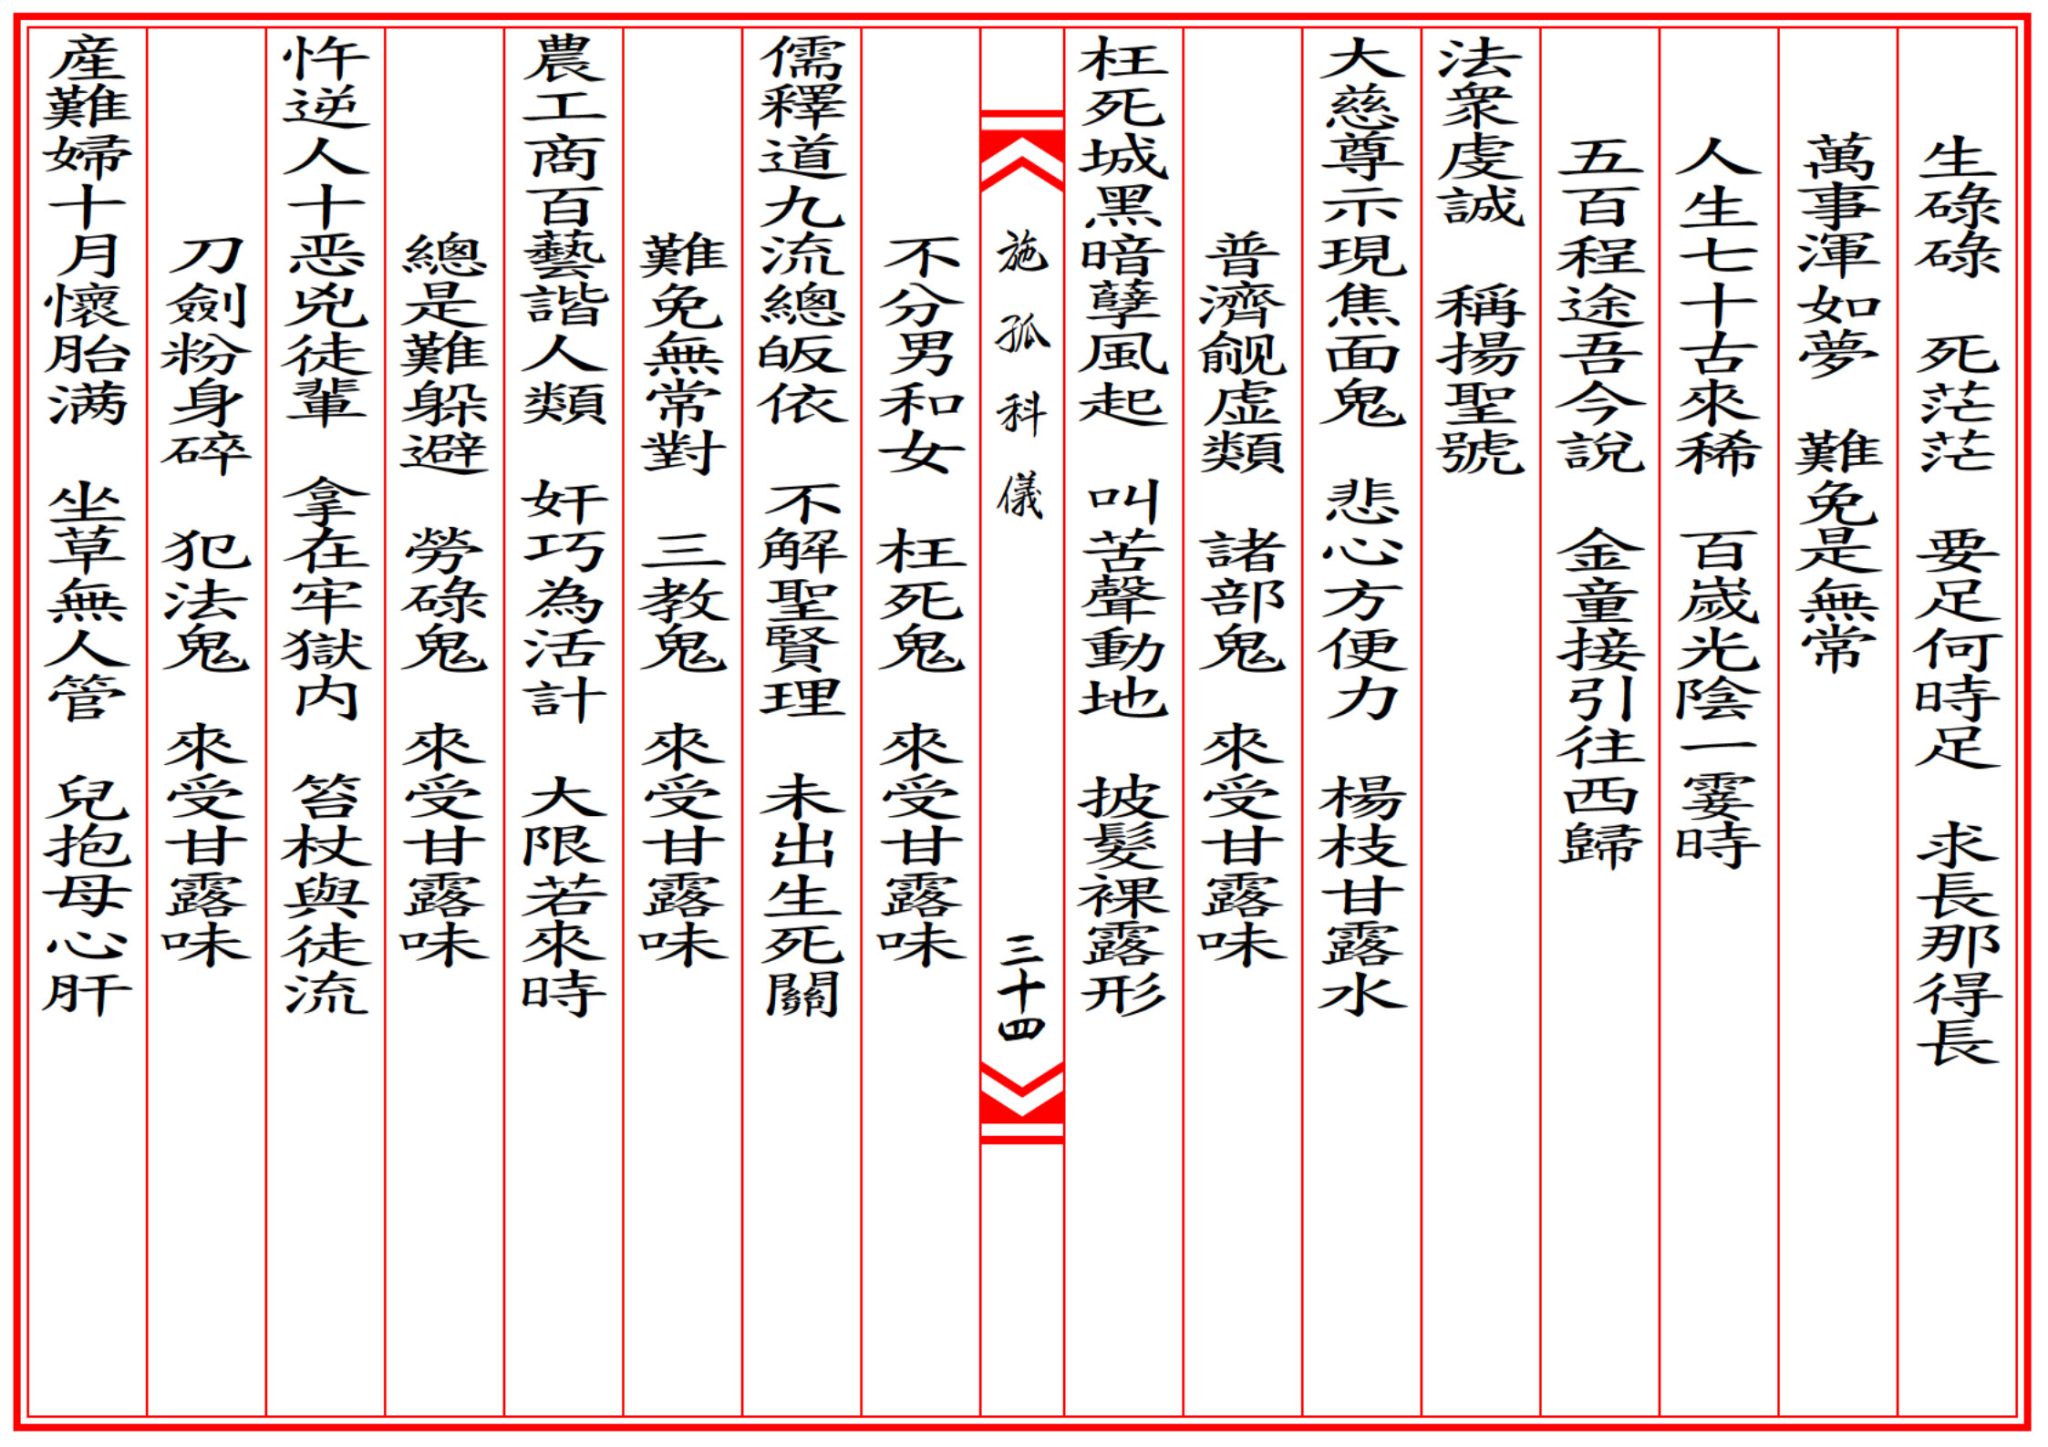 生碌碌　死茫茫　要足何時足　求長那得長
萬事渾如夢　難免是無常
人生七十古來稀　百歲光陰一霎時
五百程途吾今說　金童接引往西歸
法衆虔誠　稱揚聖號
大慈尊示現焦面鬼　悲心方便力　楊枝甘露水
普濟覦虛類　諸部鬼　來受甘露味
枉死城黑暗孽風起　叫苦聲動地　披髮裸露形
施孤科儀　三十四
不分男和女　枉死鬼　來受甘露味
儒釋道九流總皈依　不解聖賢理　未出生死關
難免無常對　三教鬼　來受甘露味
農工商百藝諧人類　奸巧為活計　大限若來時
總是難躲避　勞碌鬼　來受甘露味
忤逆人十恶兇徒輩　拿在牢獄内　笞杖與徒流
刀劍粉身碎　犯法鬼　來受甘露味
産難婦十月懷胎满　坐草無人管　兒抱母心肝